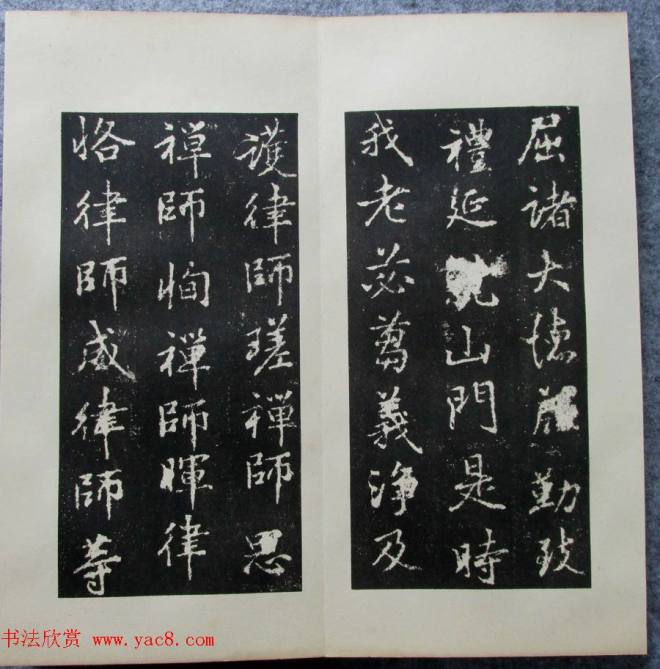 屈諸大德勤致
禮延就山門是時
我老苾蒭義淨及
護律師瑳禪師思
禪師恂禪師暉律
恪律師威律師等
书法欣赏 www.yac8.com